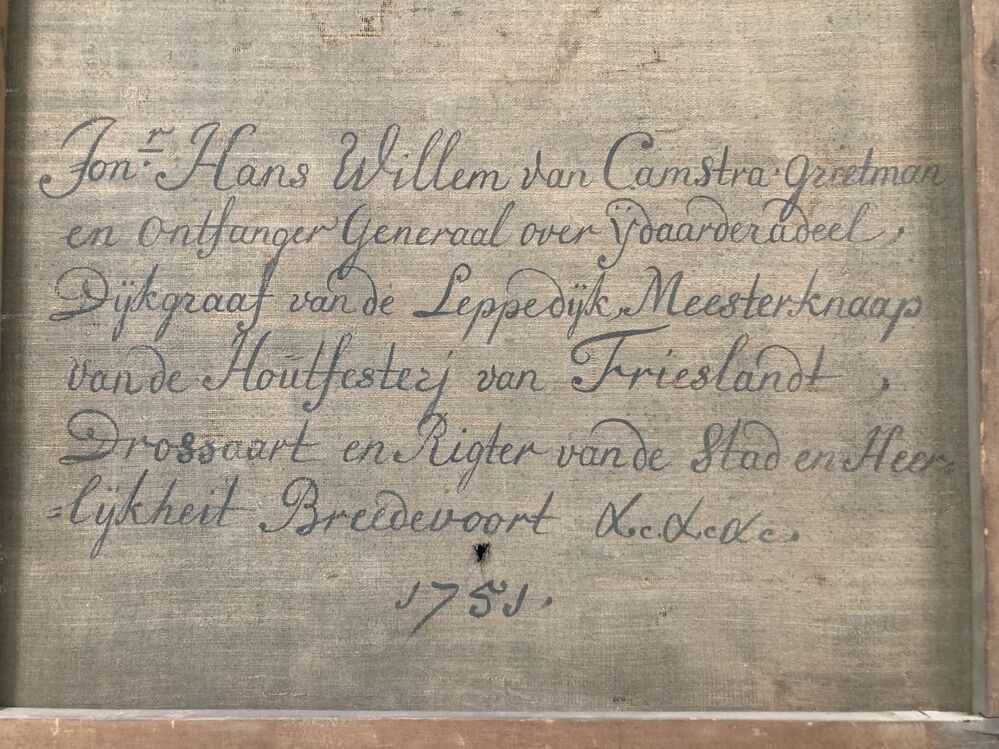 Jonr. Hans Willem van Camstra. Grietman
en Ontfanger Generaal over ÿdaarderadeel,
Dÿkgraaf van de Leppedÿk, Meesterknaap
van de Houtfesterj van Frieslandt,
Drossaart en Rigter van de Stad en Heer=
=lÿkheit Breedevoort &c. &c &c.
1751.